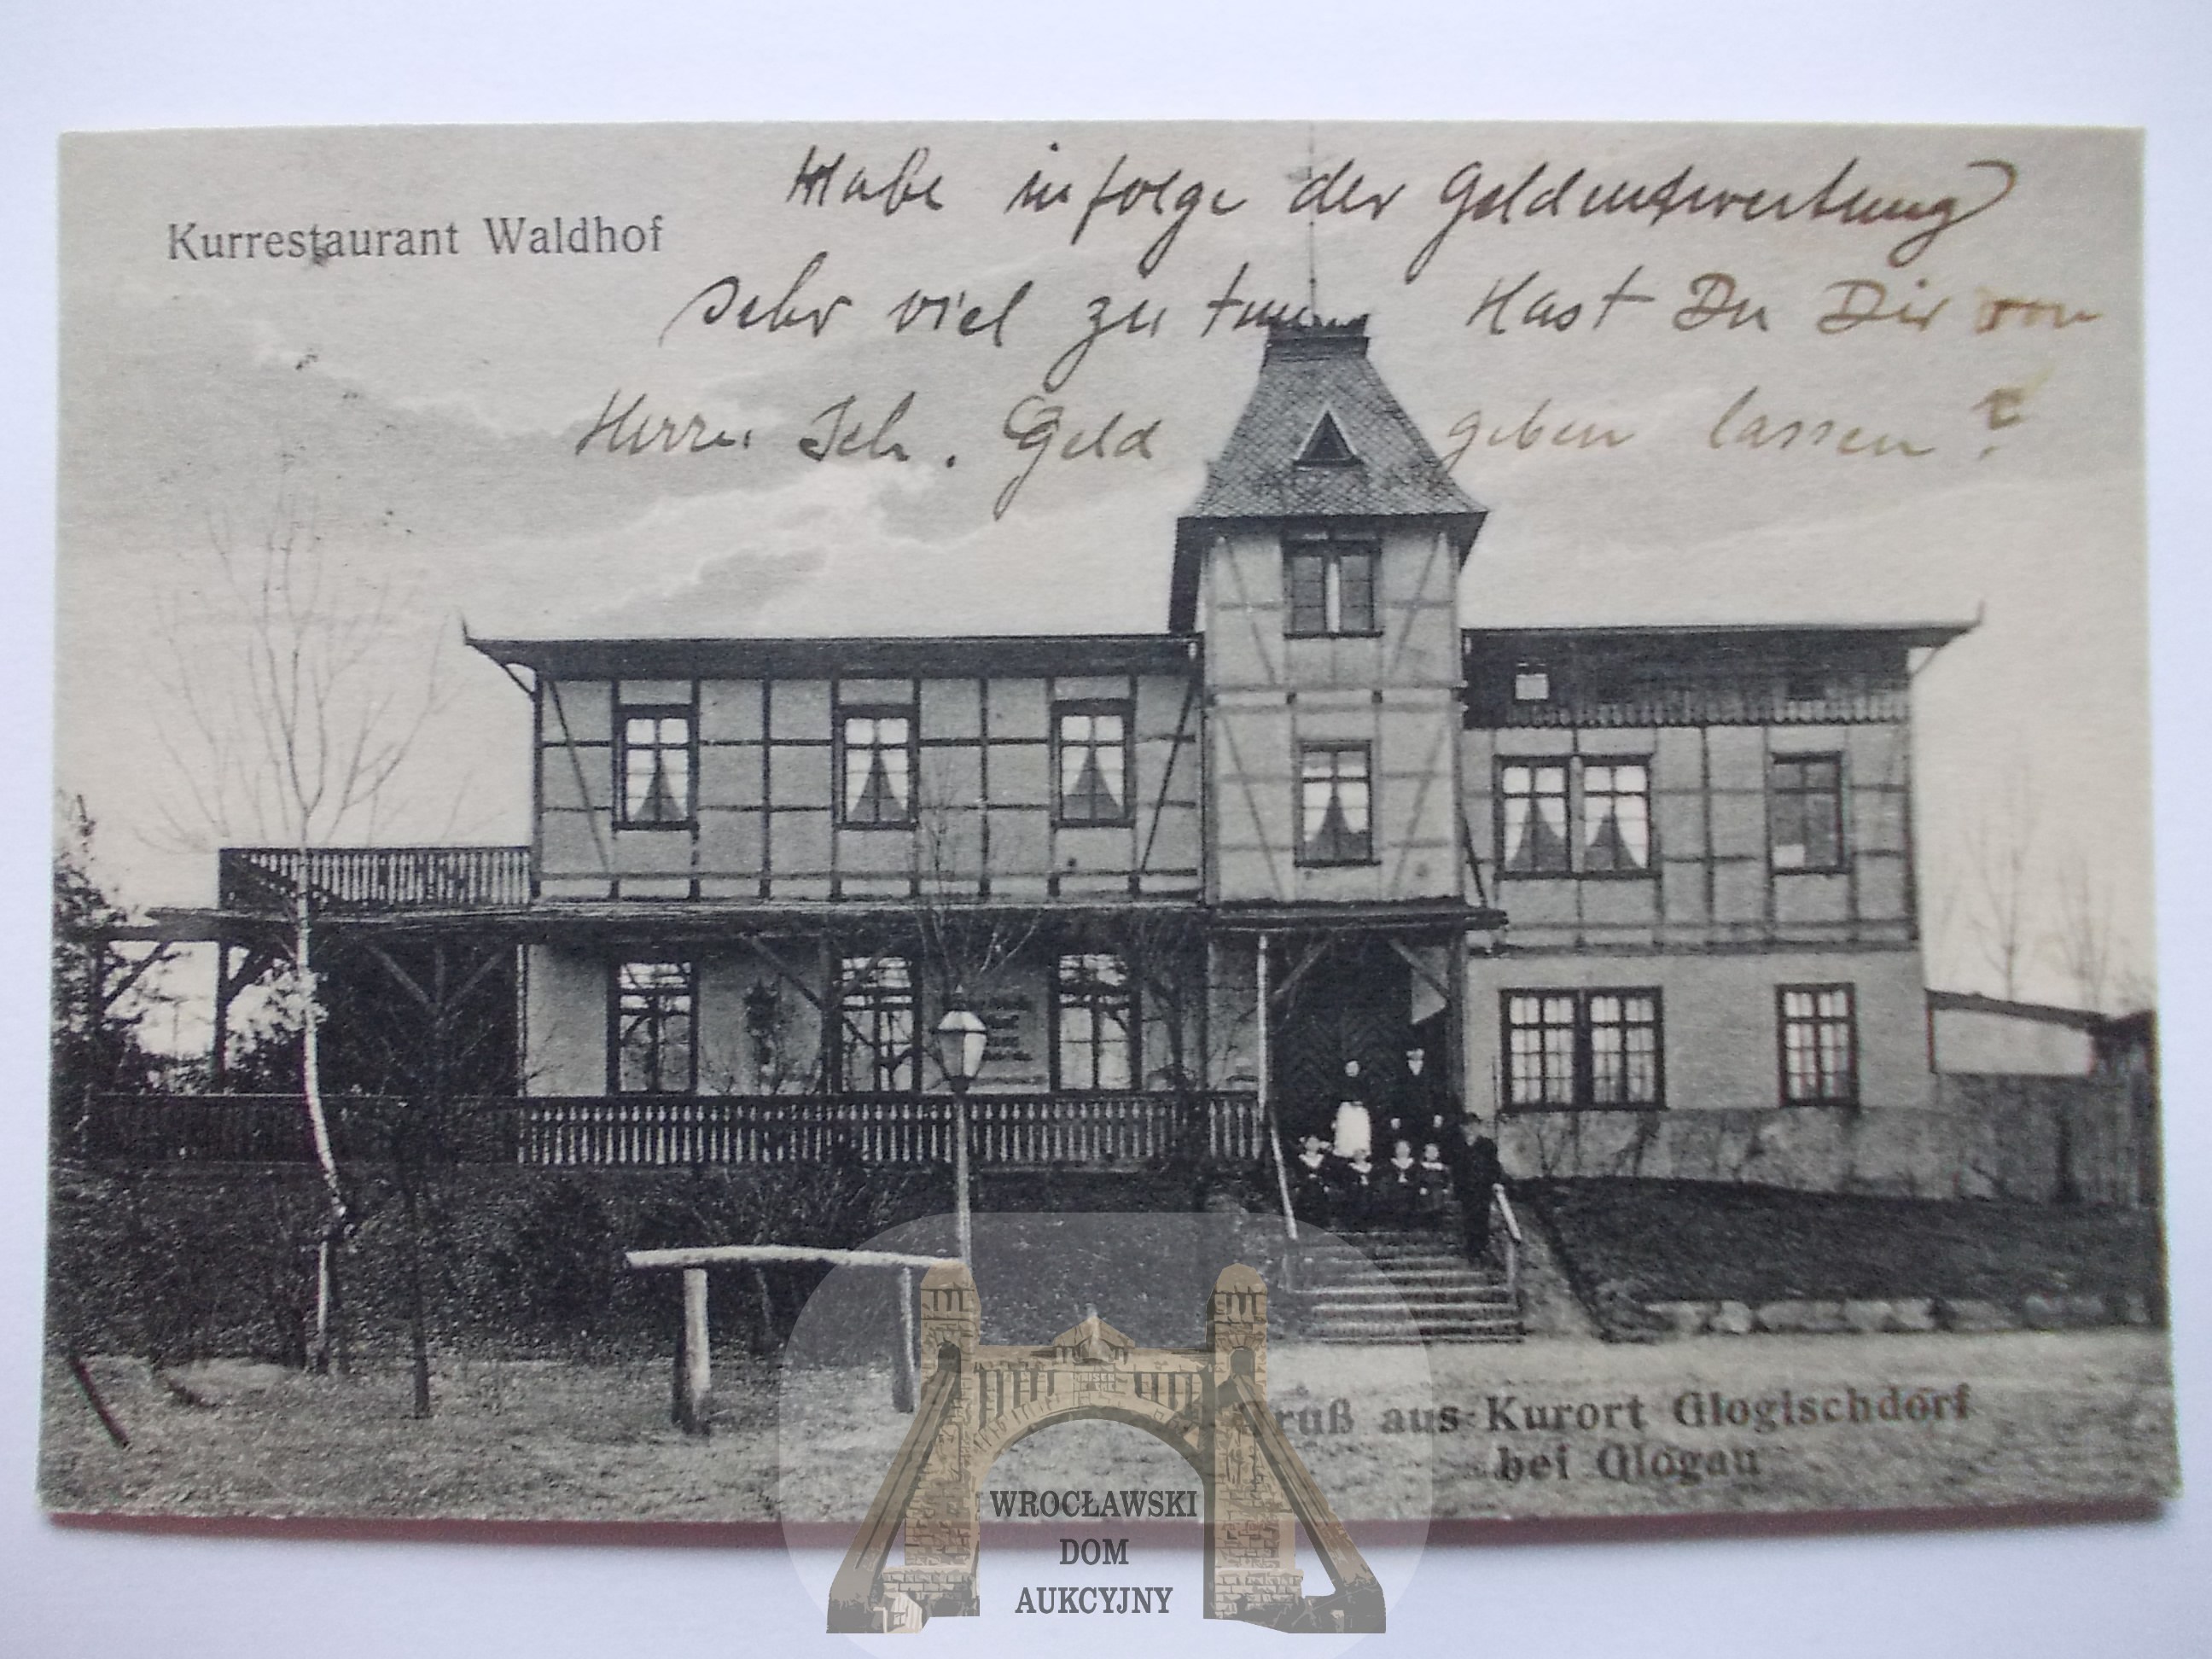 Habe infolge der Geldentwertung
Kurrestaurant Waldhof
sehr viel zu tun Hast Du Dir von
Herrn Sch. Geld geben lassen?
Gruß aus Kurort Glogischdorf
bei Glogau
WROCŁAWSKI
DOM
AUKCYJNY